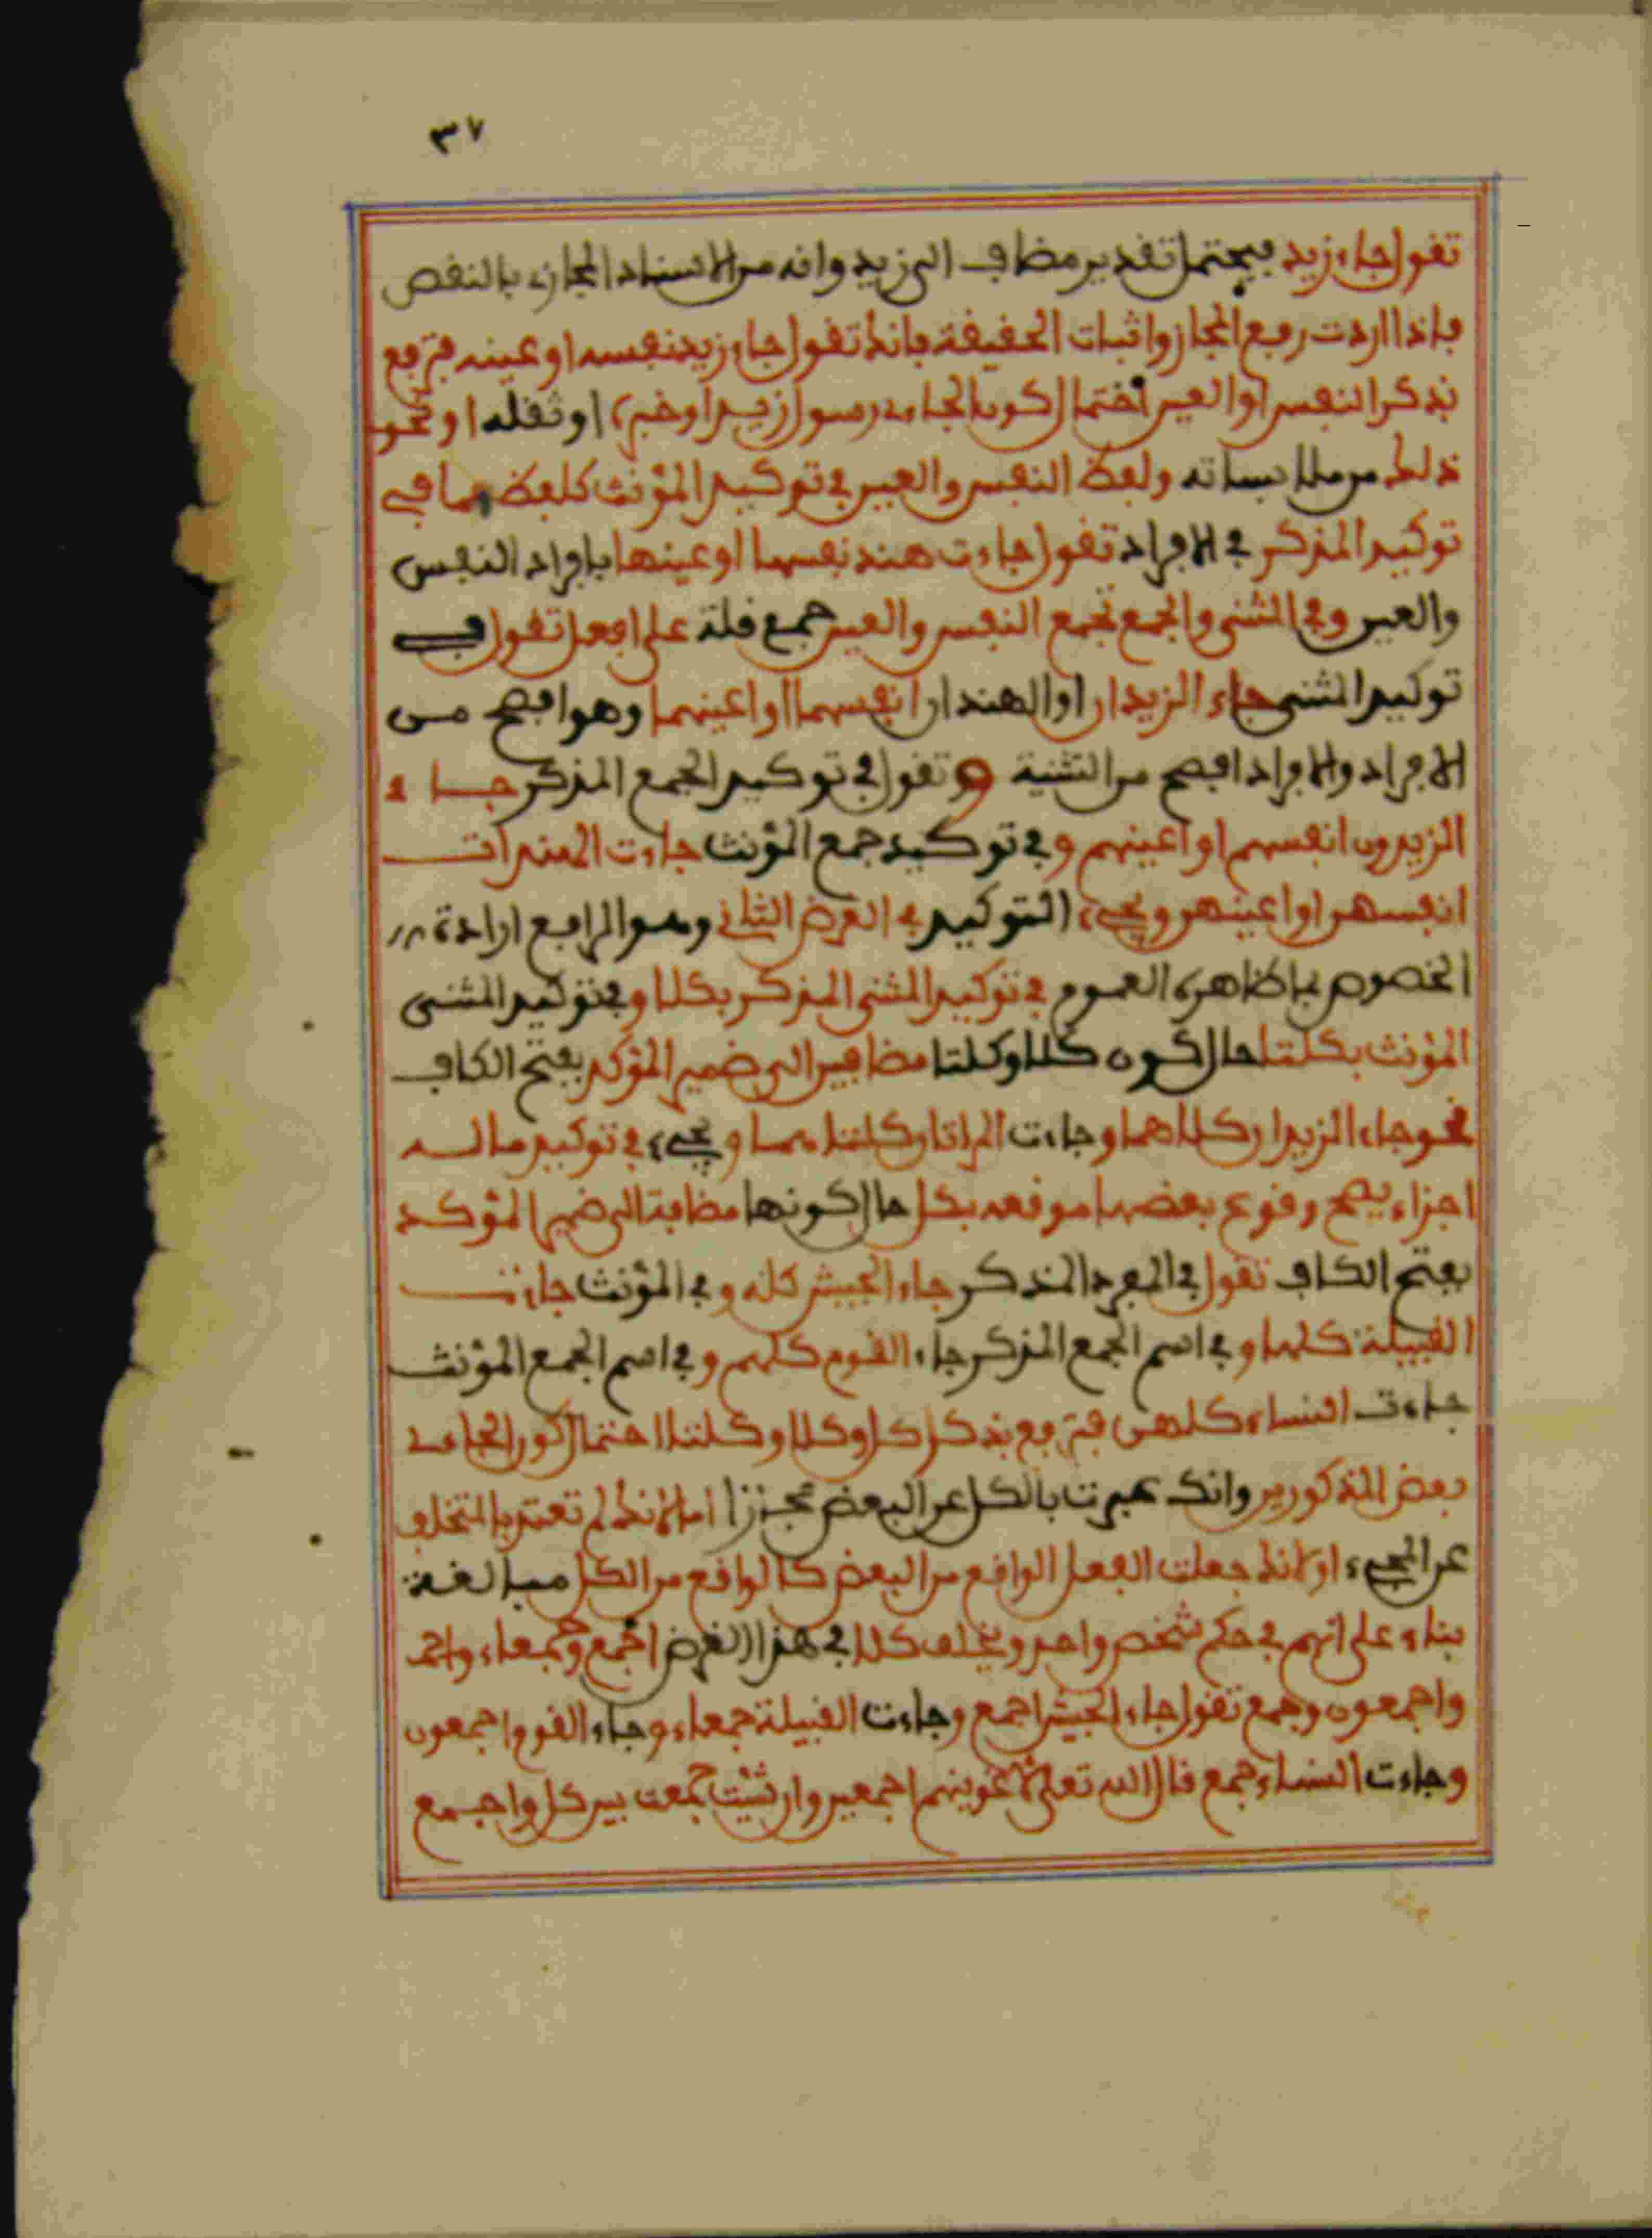 ٣٧
تقول جاء زيد فيحتمل تقدير مضاف الى زيد وانه من الاسناد المجازي بالنقص
فاذا اردت رفع المجاز واثبات الحقيقة فانك تقول جاء زيد نفسه او عينه فترفع
بذكر النفس او العين احتمال كون الجاءي رسول زيد او خبره او ثقله او نحو
ذلك من ملابساته ولفظ النفس والعين في توكيد المؤنث كلفظهما في
توكيد المذكر في الافراد تقول جاءت هند نفسها او عينها بافراد النفس
والعين وفي المثنى والجمع تجمع النفس والعين جمع قلة على افعل تقول في
توكيد المثنى جاء الزيدان او الهندان انفسهما او اعينهما وهو افصح من
الافراد والافراد افصح من التثنية وتقول في توكيد الجمع المذكر جاء
الزيدون انفسهم او اعينهم وفي توكيد جمع المؤنث جاءت الهندات
انفسهن او اعينهن ويجيء التوكيد في الغرض الثاني وهو الرافع ارادة
الخصوص بما ظاهره العموم في توكيد المثنى المذكر بكلا وفي توكيد المثنى
المؤنث بكلتا حال كون كلا وكلتا مضافين الى ضمير المؤكد بفتح الكاف
نحو جاء الزيدان كلاهما وجاءت المراتان كلتاهما ويجيء في توكيد ما له
اجزاء يصح وقوع بعضها موقعه بكل حال كونها مضافة الى ضمير المؤكد
بفتح الكاف تقول في المفرد المذكر جاء الجيش كله وفي المؤنث جاءت
القبيلة كلها وفي اسم الجمع المذكر جاء القوم كلهم وفي اسم الجمع المؤنث
جاءت النساء كلهن فترفع بذكر كل وكلا وكلتا احتمال كون الجاءي
بعض المذكورين وانك عبرت بالكل عن البعض مجازا اما لانك لم تعتد بالمتخلف
عن المجيء او لانك جعلت الفعل الواقع من البعض كالواقع من الكل مبالغة
بناء على انهم في حكم شخص واحد ويخلف كلا في هذا الغرض اجمع وجمعاء واجم
واجمعون وجمع تقول جاء الجيش اجمع وجاءت القبيلة جمعاء وجاء القوم اجمعون
وجاءت النساء جمع قال الله تعلى لاغوينهم اجمعين وان شئت جمعت بين كل واجمع